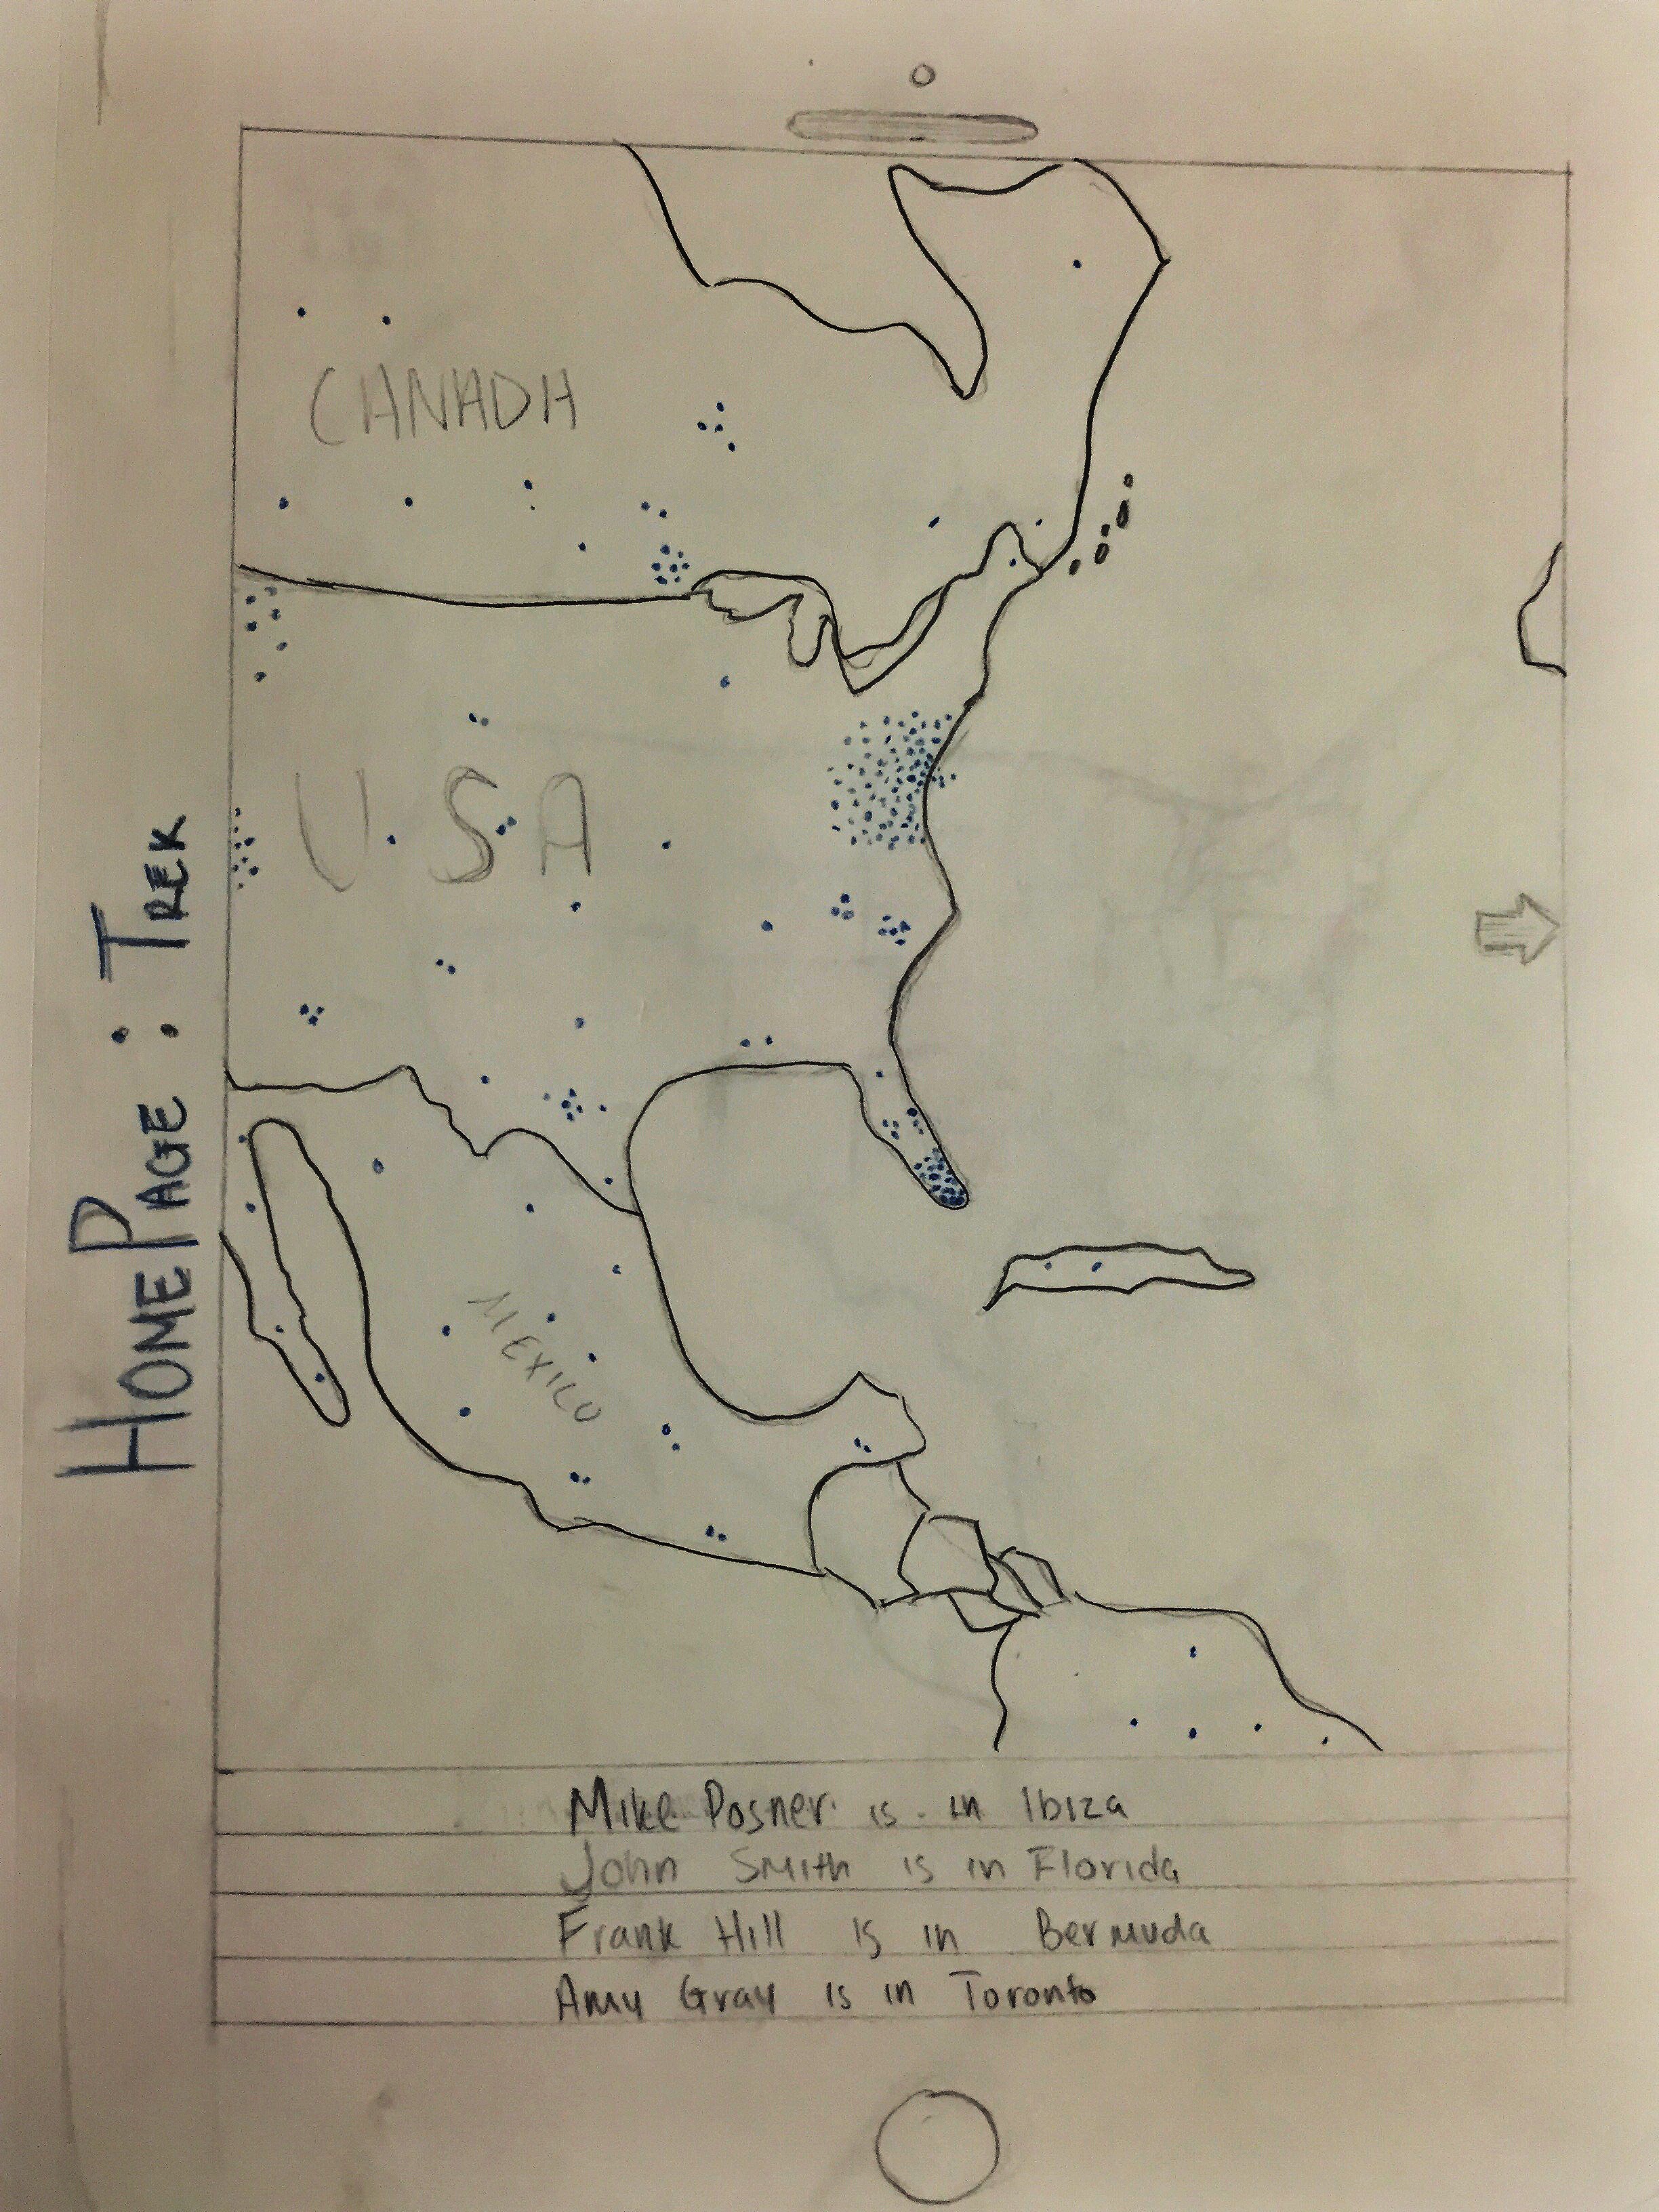 HOMEPAGE : TREK
CANADA
USA
MEXICO
Mike Posner is in Ibiza
John Smith is in Florida
Frank Hill is in Bermuda
Amy Gray is in Toronto